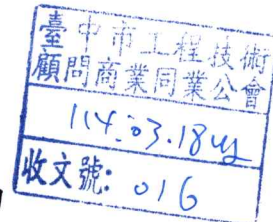 臺中市工程技術
顧問商業同業公會
114.03.18
收文號：016